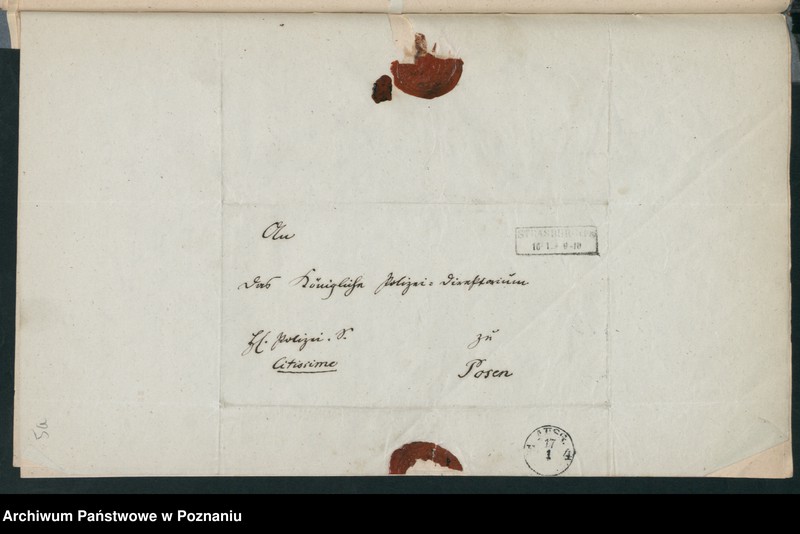 An
das Königliche Polizei-Direktorium
Polizei. S.
zu
Citissime
Posen
AUSG.
17
1
5a
Archiwum Państwowe w Poznaniu